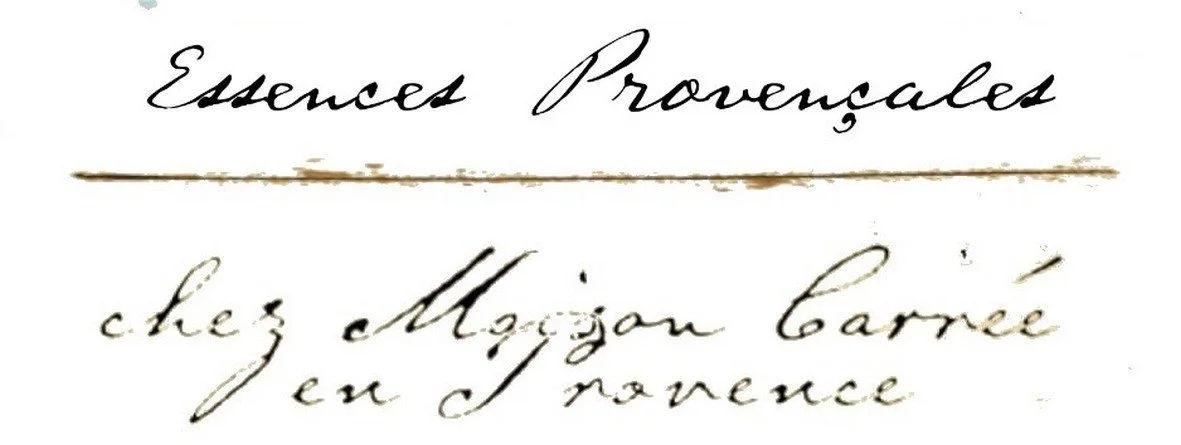 Essences Provençales
chez Maison Carrée
en Provence